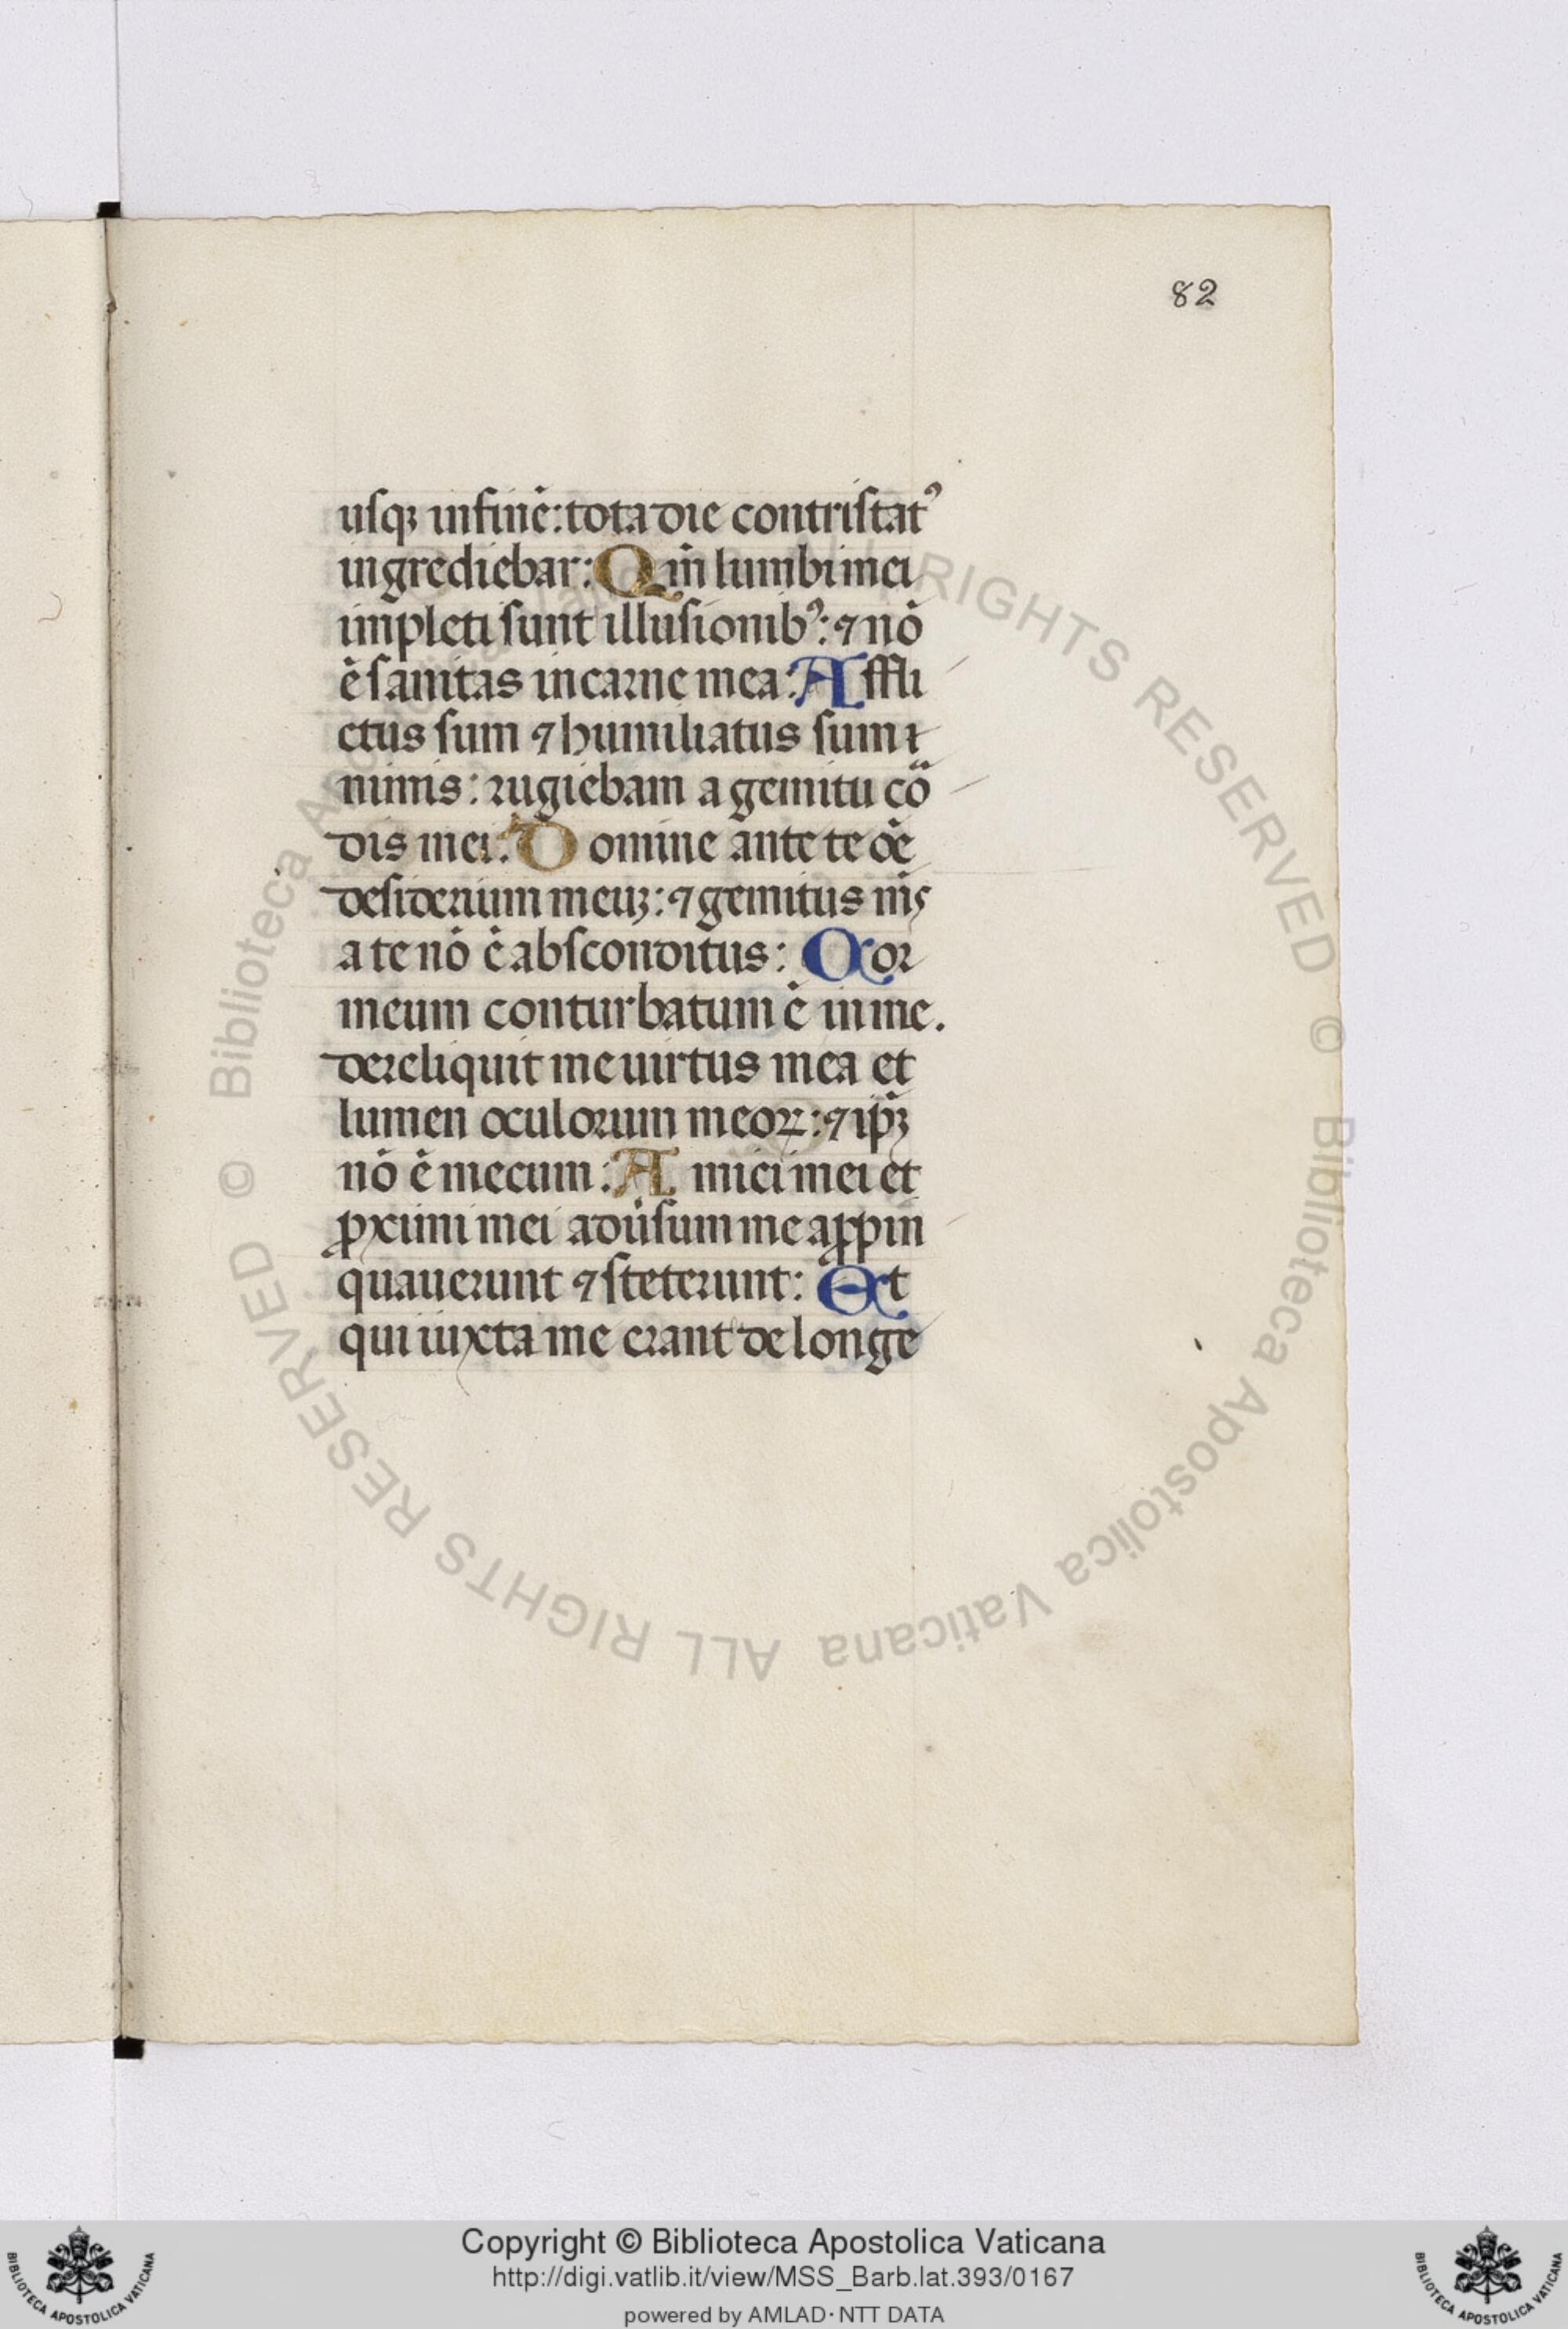 82
usqꝫ in finē: tota die contristatꝰ
ingrediebar: Qm̄ lumbi mei
impleti sunt illusionibꝰ: ⁊ nō
ē sanitas in carne mea: Affli
ctus sum ⁊ humiliatus sum
nimis: rugiebam a gemitu co᷒
dis mei: Domine ante te oē
desiderium meuꝫ: ⁊ gemitus m̄s
a te nō ē absconditus: Cor
meum conturbatum ē in me.
dereliquit me uirtus mea et
lumen oculorum meoꝝ: ⁊ ip̄ꝫ
nō ē mecum: Amici mei et
ꝓximi mei adūsum me aꝓpin
quauerunt ⁊ steterunt: Et
qui iuxta me erant de longe
© Biblioteca Apostolica Vaticana ALL RIGHTS RESERVED © Biblioteca Apostolica Vaticana ALL RIGHTS RESERVED
Copyright © Biblioteca Apostolica Vaticana
http://digi.vatlib.it/view/MSS_Barb.lat.393/0167
powered by AMLAD·NTT DATA
BIBLIOTECA APOSTOLICA VATICANA
BIBLIOTECA APOSTOLICA VATICANA